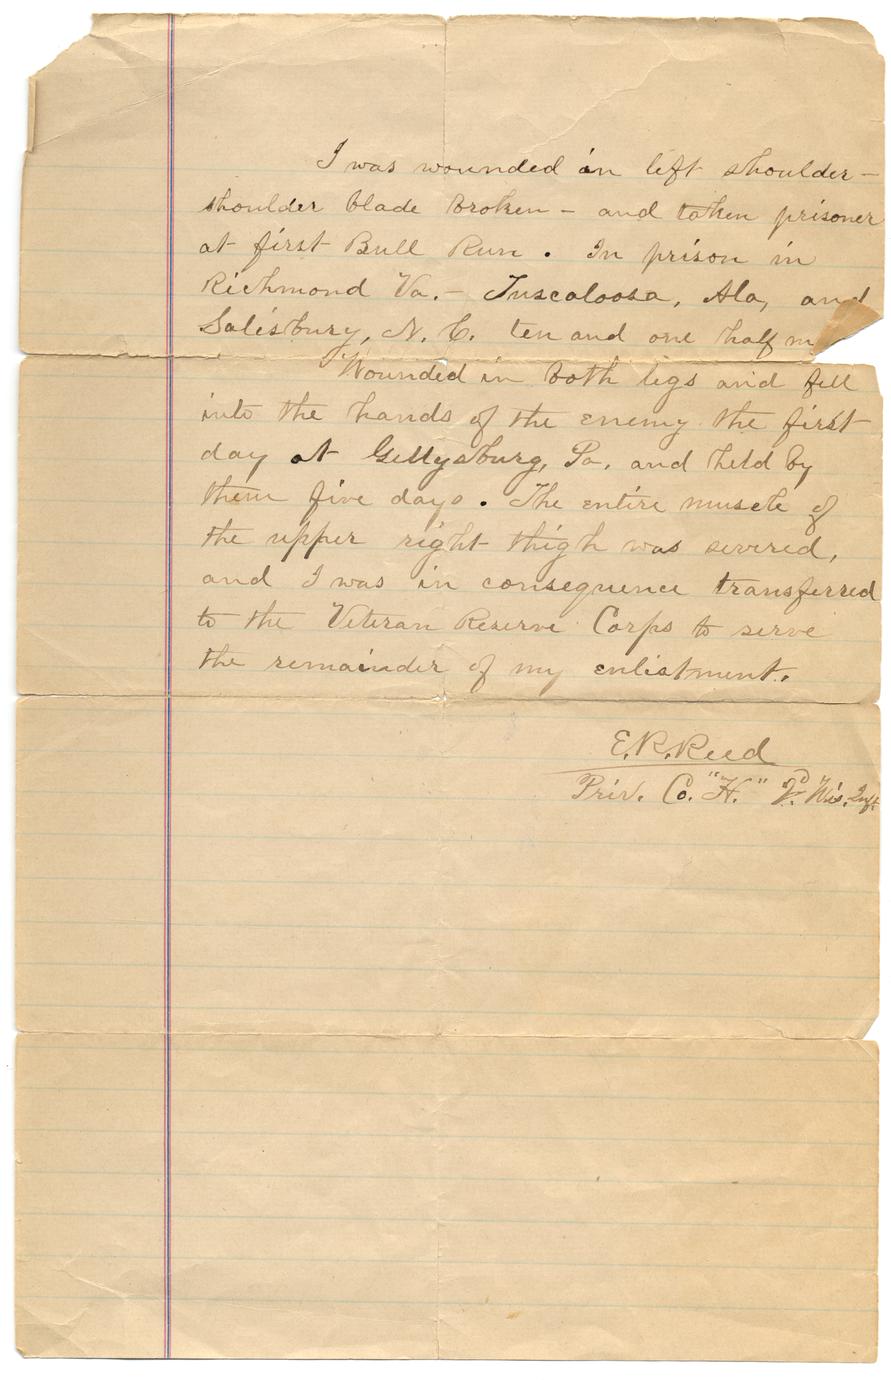 I was wounded in left shoulder –
shoulder blade broken – and taken prisoner
at first Bull Run. In prison in
Richmond Va. – Tuscaloosa, Ala, and
Salisbury, N. C. ten and one half m
Wounded in both legs and fell
into the hands of the enemy the first
day at Gettysburg, Pa. and held by
them five days. The entire muscle of
the upper right thigh was severed,
and I was in consequence transferred
to the Veteran Reserve Corps to serve
the remainder of my enlistment.
E. R. Reed
Priv. Co. "H." Wis. Inft